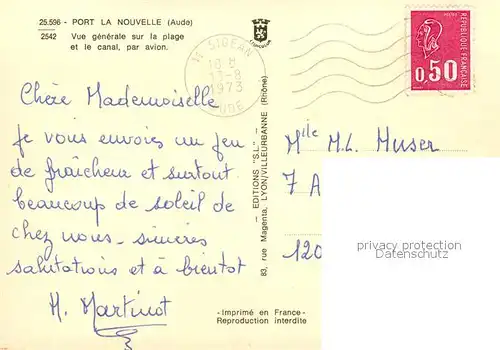 25.596 - PORT LA NOUVELLE (Aude)
2542 Vue générale sur la plage
et le canal, par avion.
11 SIGEAN
18 H
13-8
1973
AUDE
RÉPUBLIQUE FRANÇAISE
0,50
Chère Mademoiselle
Je vous envoies un peu
de fraîcheur et surtout
beaucoup de soleil de
chez nous - sincères
salutations et à bientôt
M. Martinot
- EDITIONS "S.L." -
83, rue Magenta, LYON/VILLEURBANNE (Rhône)
Mlle M.L. Muser
7 A
120
privacy protection
Datenschutz
-Imprimé en France-
Reproduction interdite